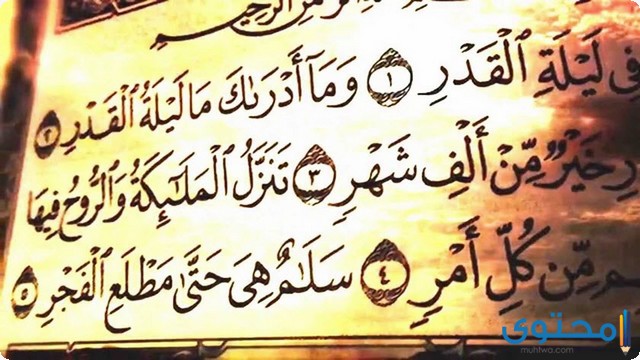 ٱلرَّحِيمِ
فِى لَيْلَةِ ٱلْقَدْرِ ١ وَمَآ أَدْرَىٰكَ مَا لَيْلَةُ ٱلْقَدْرِ ٢
خَيْرٌ مِّنْ أَلْفِ شَهْرٍ ٣ تَنَزَّلُ ٱلْمَلَـٰٓئِكَةُ وَٱلرُّوحُ فِيهَا
مِّن كُلِّ أَمْرٍ ٤ سَلَـٰمٌ هِىَ حَتَّىٰ مَطْلَعِ ٱلْفَجْرِ ٥
محتوى
muhtwa.com